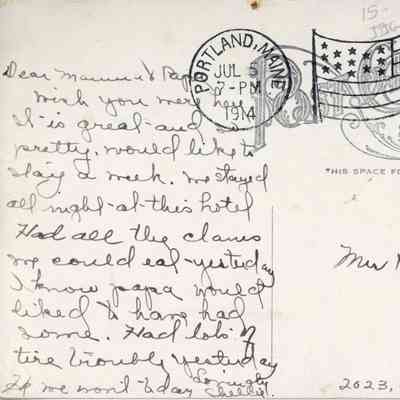 15-
PORTLAND, MAINE
JUL 5
7-PM
1914
Dear Mamma & Papa
Wish you were here
It is great and so
pretty. would like to
stay a week. we stayed
all night at this hotel
Had all the clams
we could eat yesterday
I know papa would
liked to have had
some. Had lots of
tire trouble yesterday
we won't today
Lovingly
THIS SPACE FO
Mrs
2023,